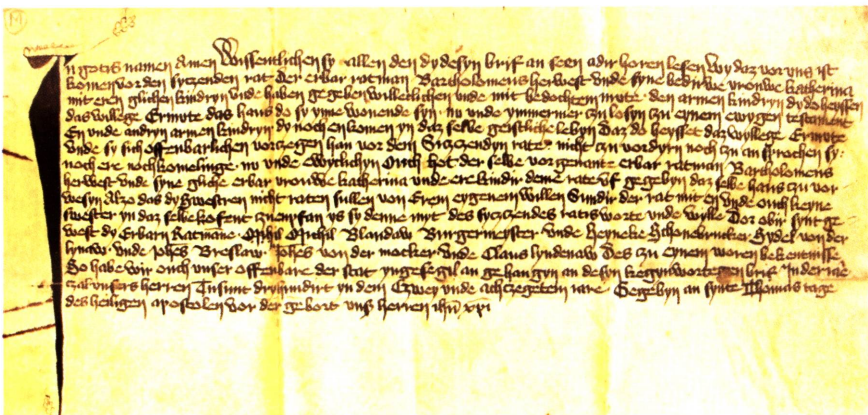 In gotis namen Amen Wissentlichen sy allen den dy desyn brif an seen adir horen lesen Wy daz vor uns ist
komen vor den syczenden rat der erbar ratman Bartholomeus herwest vnde syne bedirwe vrouwe katherina
mit eren glichen kindryn vnde haben gegeben willeclichen vnde mit bedochtem mute den armen kindryn dy do heyssen
das willege Ermute das haus do sy ynne wonende syn nu vnde ymmermer czu losyn czu eynem ewygen testament
En vnde andryn armen kindryn dy noch en komen yn daz selbe geistliche lebyn daz do heysset daz wyllege Ermute
vnde sy sich offenbarlichen vorzegen han vor dem Siczczenden rate nicht czu vordyrn noch czu an sprochen sy
noch ere nochkomelinge nu vnde ewyclichyn Ouch hot der selbe vorgenante erbar ratman Bartholomeus
herwest vnde syne gliche erbar vrouwe katherina vnde ere kindir deme rate vf gegebyn daz selbe haus czu vor
wesyn Alzo daz dy swestren nicht raten sullen von Erem eygenem willen Sundir der rat mit en vnde ouch keyne
swester yn daz selbe kofent czu enpfan ys sy denne myt des syczczendes ratis worte vnde wylle Dor obir synt ge
west dy Erbarn Ratmane Michil Blandaw Burgermeyster vnde Heyneke Schonebrucker Sydel von der
lynaw vnde Johes Breslaw Johes von der mocker vnde Claus lyndenaw Des czu eynem woren bekentnisse
So habe wir ouch vnser offenbare der stat yngesegil an gehangyn an desyn kegynwortegen brif In der iare
zal vnsers herren Tusunt dryhundirt yn dem Czwey vnde achczegetem iare Gegebyn an synte Thomas tage
des heiligen apostolen vor der gebort vnsers herren ihu xpi